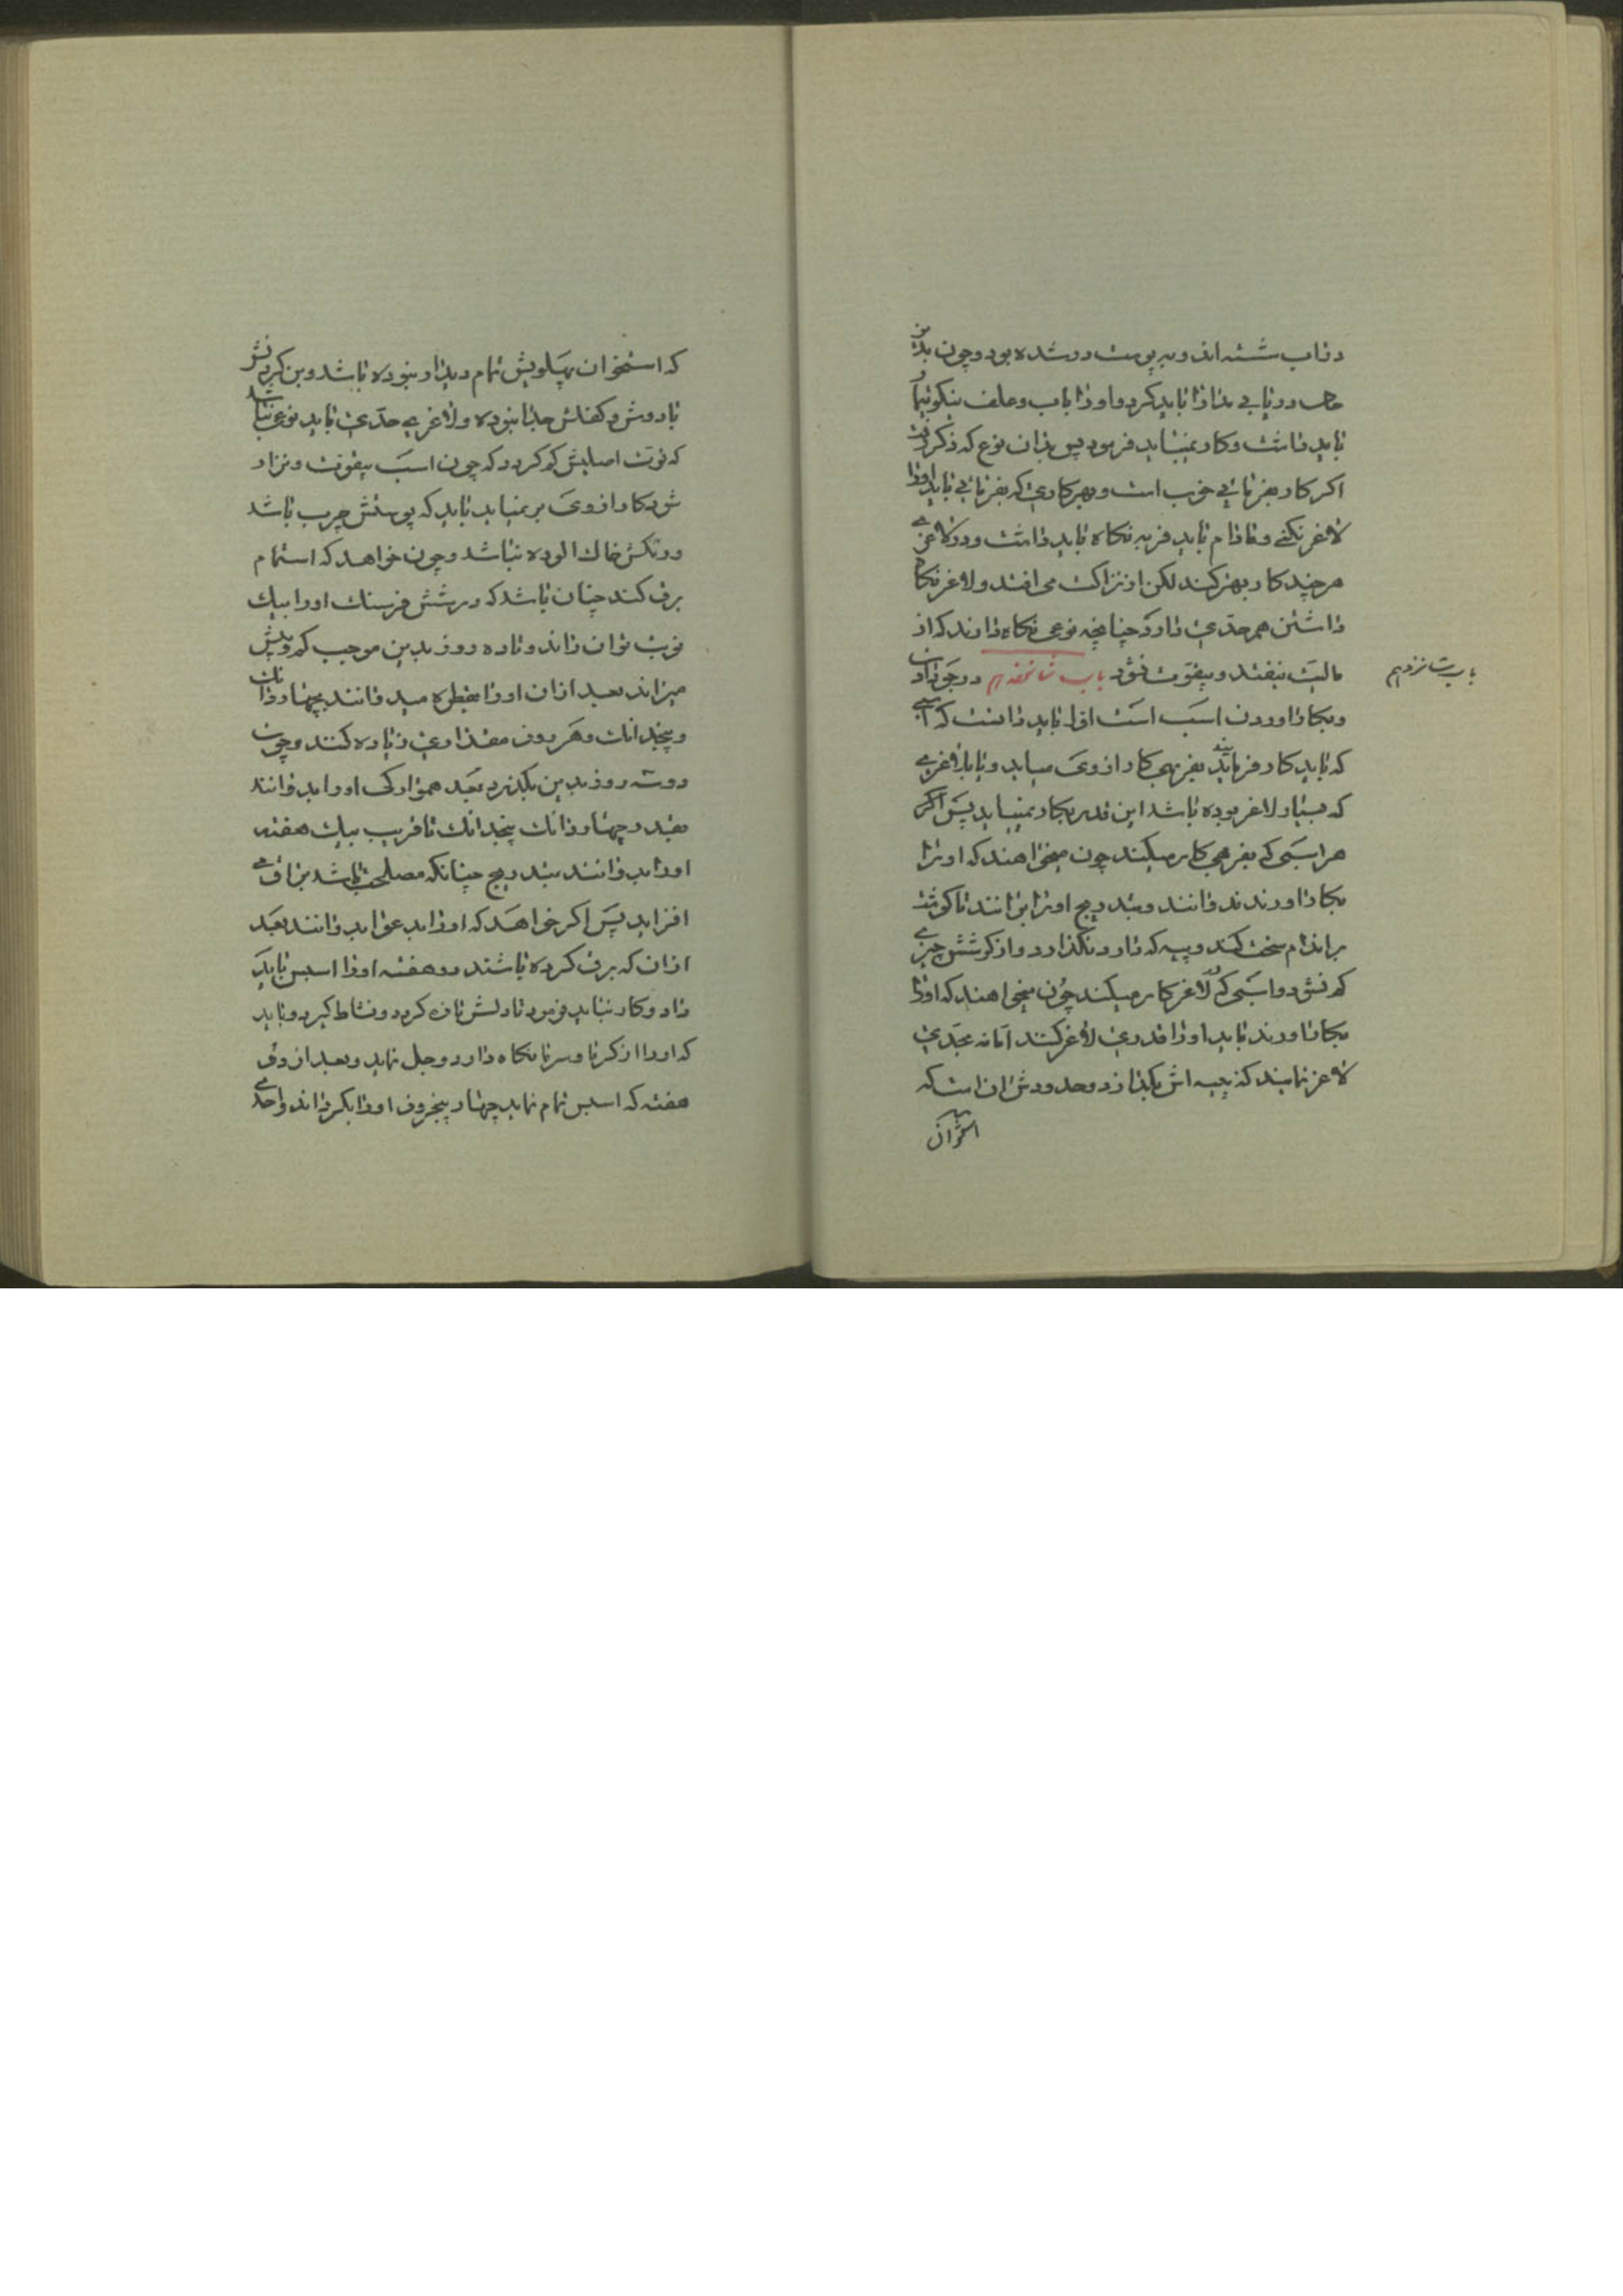 در تاب شسته اند و به پوست در شده بود و چون بدین
حال دریابی مدارا باید کرد و او را باب و علف نیکو تیمار
باید داشت و کار نمیباید فرمود پس بدان نوع که ذکر رفت
اگر کار بفرمائی خوب است و بهر کاری که بفرمائی باید او را
لاغر نکنی و مادام باید فربه نگاه باید داشت و در لاغری
هر چند کار بهتر کند لکن از نزاکت می افتد و لاغر نگاه
داشتن هم حدی دارد چنانچه نوعی نگاه دارند که از
مالیت نیفتد و بیقوت نشود باب شانزدهم در جوزان
باب شانزدهم
و بکار آوردن اسب است اول باید دانست که اسبی
که باید کار فرمایند بفربهی کار از وی میاید و یا بلاغری
که بسیار لاغر بوده باشد این قدر بکار نمیباید پس اگر
هر اسبی که بفربهی کار میکند چون میخواهند که او را
بکار آورند ند وانند و بتدریج او را برانند تا گوشت
بر اندام سخت کند و پیه که دارد بگذارد و از گوشتش چیزی
کم نشود و اسبی که لاغر کار میکند چون میخواهند که او را
بکار آورند باید او را قدری لاغر کنند اما نه بحدی
لاغر نمایند که پیه اش بگدازد و حدودش آن است که
استخوان
که استخوان پهلویش تمام دیدار نبوده باشد و بن گردنش
با دوش و کفلش جدا نبوده و لاغری حدی باید نوعی نباشد
که قوت اصلیش کم گردد که چون اسب بیقوت و نزار
شود کار از وی بر نمیاید باید که پوستش چرب باشد
و رنگش خاک آلوده نباشد و چون خواهد که استمام
برف کند چنان باشد که در شش فرسنگ او را بیک
نوبت توان راند و تا ده روز بدین موجب کم و بیش
میراند بعد از آن او را بقطره میدوانند بچهار دانک
و پنجدانک و هر روز مقداری زیاده کنند و چون
دو سه روز بدین بگذرد بعد هموار کی او را بدوانند
بقدر چهار دانک پنجدانک تا قریب بیک هفته
او را بدوانند بتدریج چنانکه مصلحت باشد بران می
افزاید پس اگر خواهد که او را بدعوا بدوانند بعد
از آن که برف کرده باشند دو هفته او را اسبس باید
داد و کار نباید فرمود تا دلش تازه گردد و نشاط گیرد و باید
که او را از گرما و سرما نگاه دارد و جل نماید و بعد از دو
هفته که اسبس تمام نماید چهار پنجروز او را بگرداند و احدی